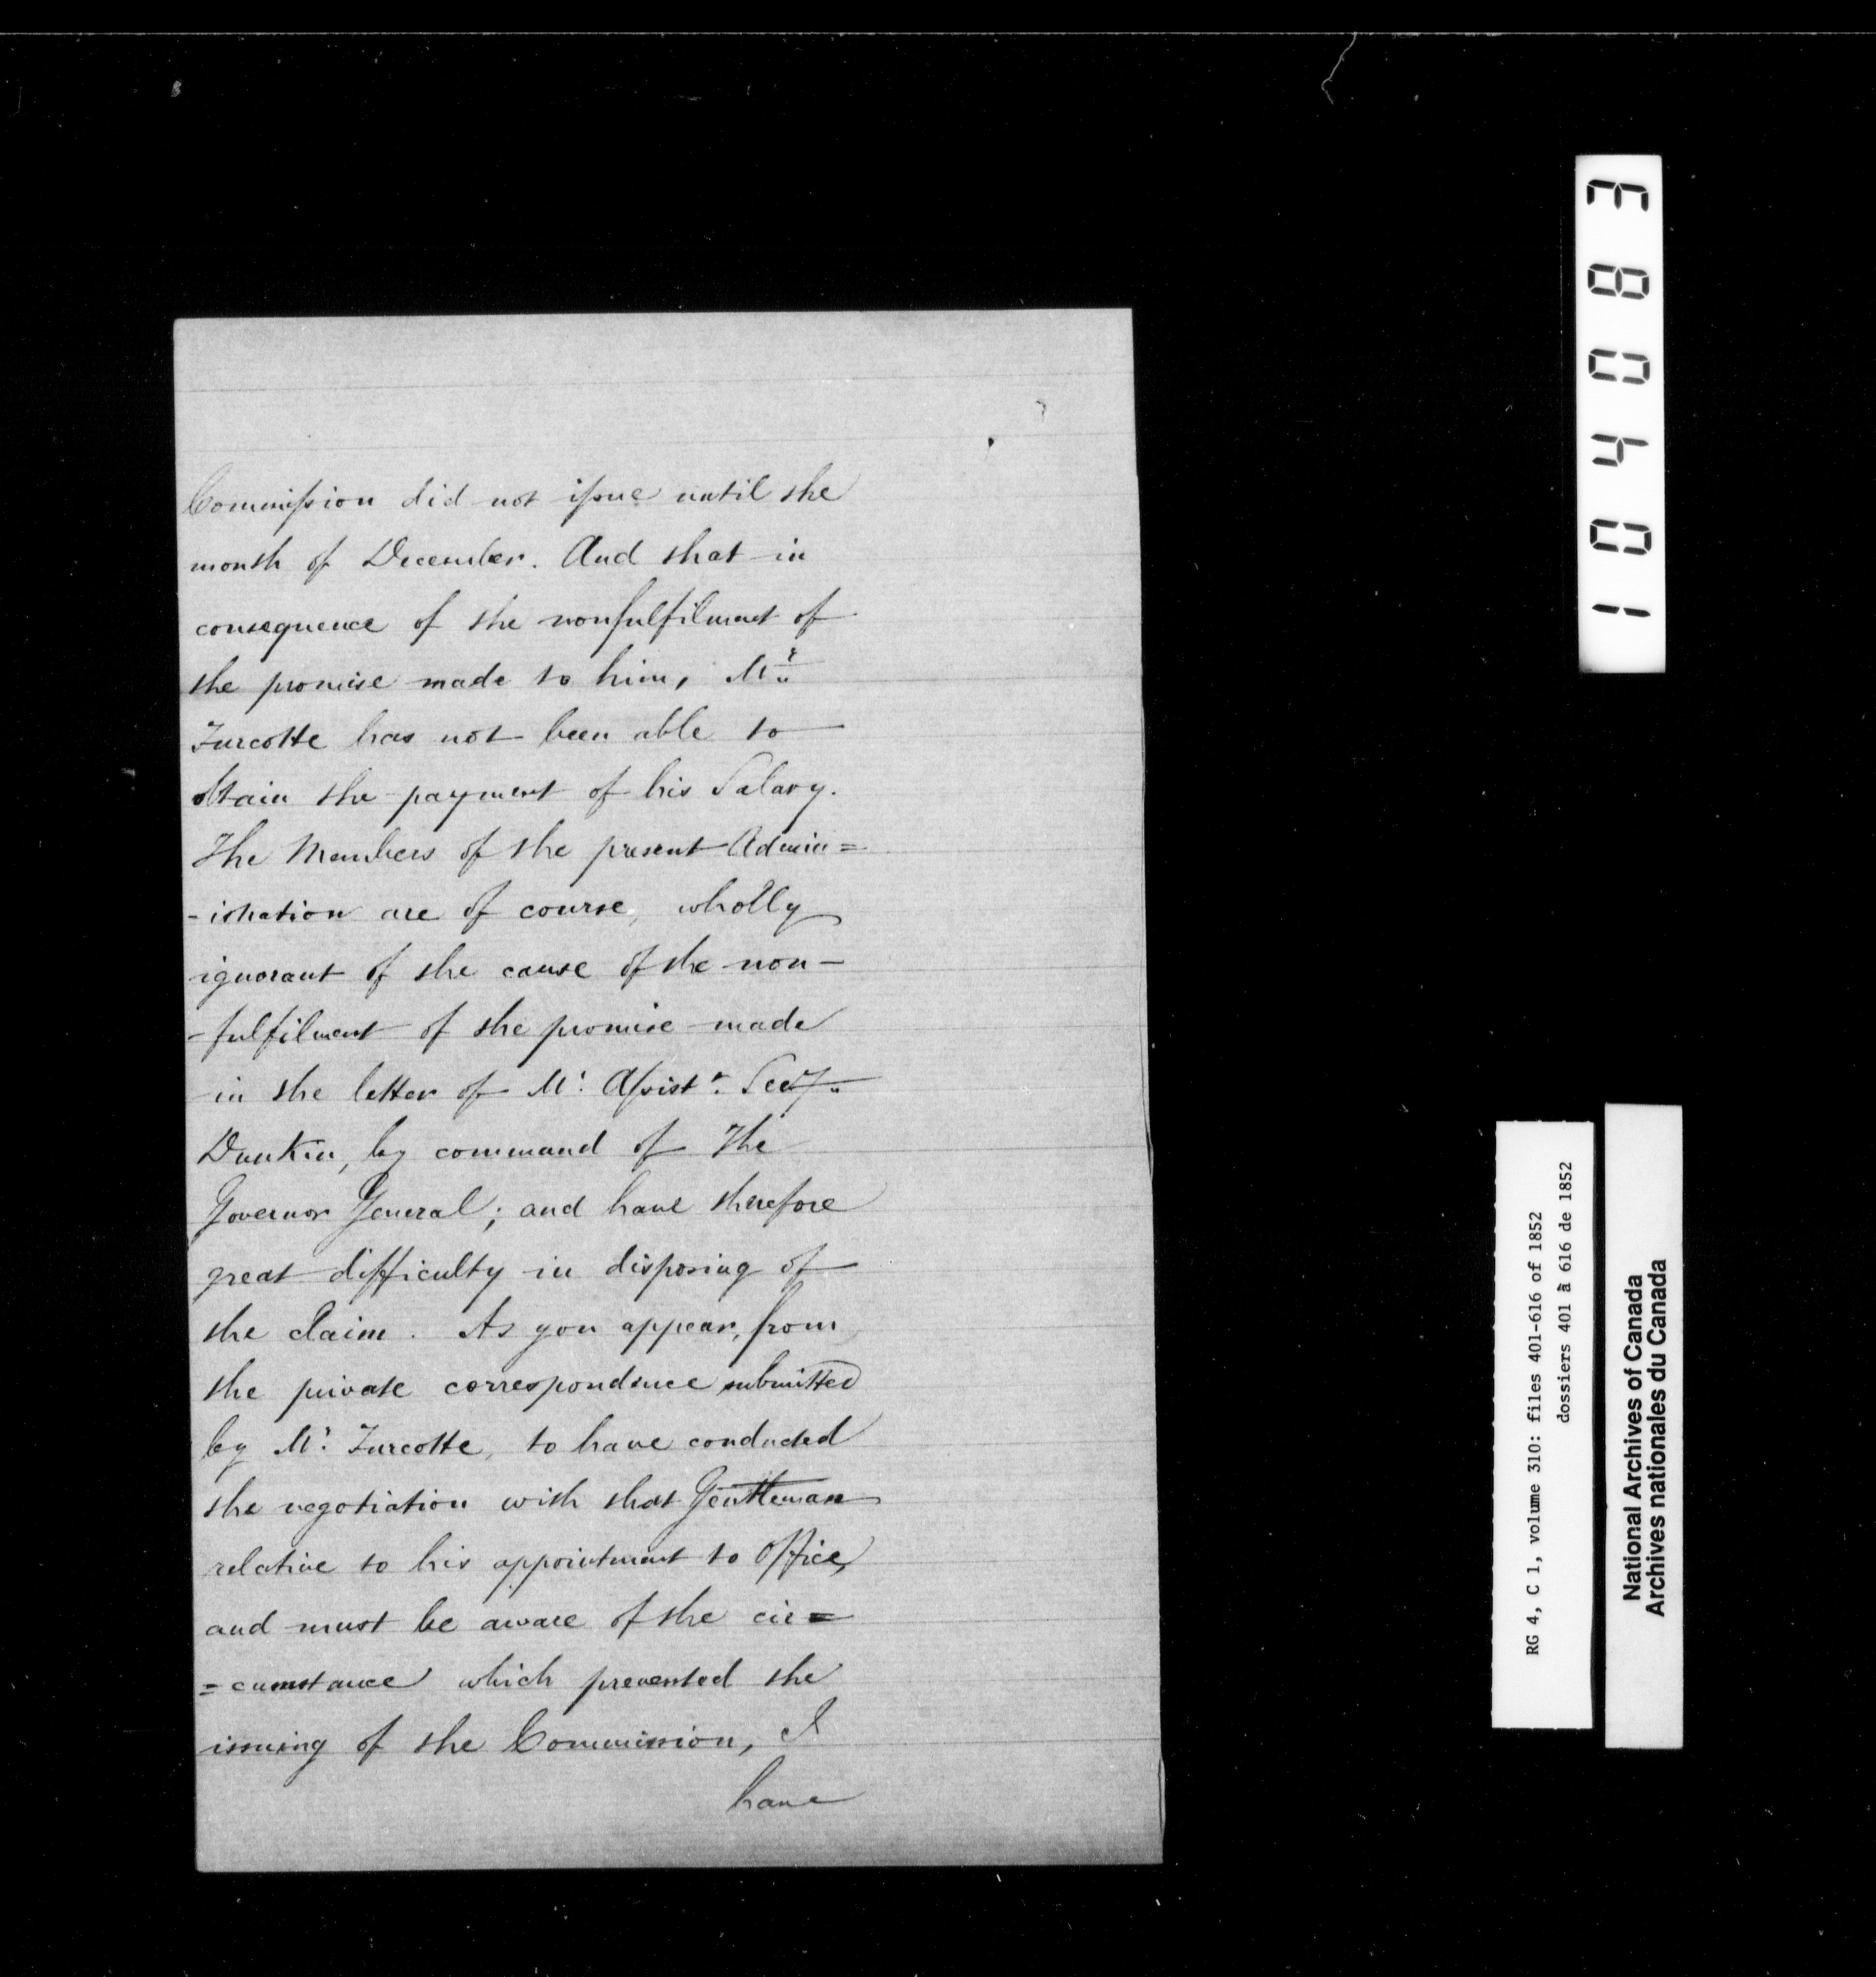 Commission did not issue until the
month of December. And that in
consequence of the nonfulfilment of
the promise made to him, Mr.
Turcotte has not been able to
obtain the payment of his Salary.
The Members of the present Admin=
-istration are of course, wholly
ignorant of the cause of the non-
-fulfilment of the promise made
in the letter of Mr. Assistt. Secy.
Dunkin, by command of The
Governor General; and have therefore
great difficulty in disposing of
the claim. As you appear, from
the private correspondence submitted
by Mr. Turcotte, to have conducted
the negotiation with that Gentleman
relative to his appointment to Office,
and must be aware of the cir=
=cumstance which prevented the
issuing of the Commission, I
have
104083
RG 4, C 1, volume 310: files 401-616 of 1852
dossiers 401 à 616 de 1852
National Archives of Canada
Archives nationales du Canada